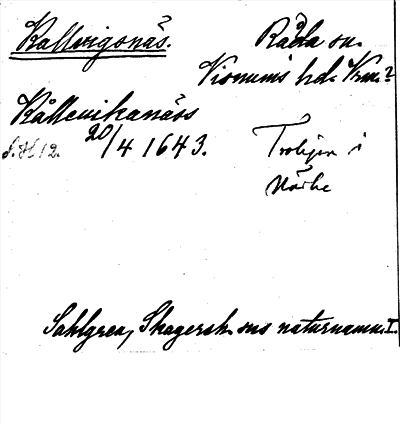 Kallvigsnäs. ?
Råda sn.
Visnums hd. Vrm.?
Kållevikanäss
20/4 1643.
Troligen i
Närke
Sahlgren, Skagersh. sns naturnamn. I.